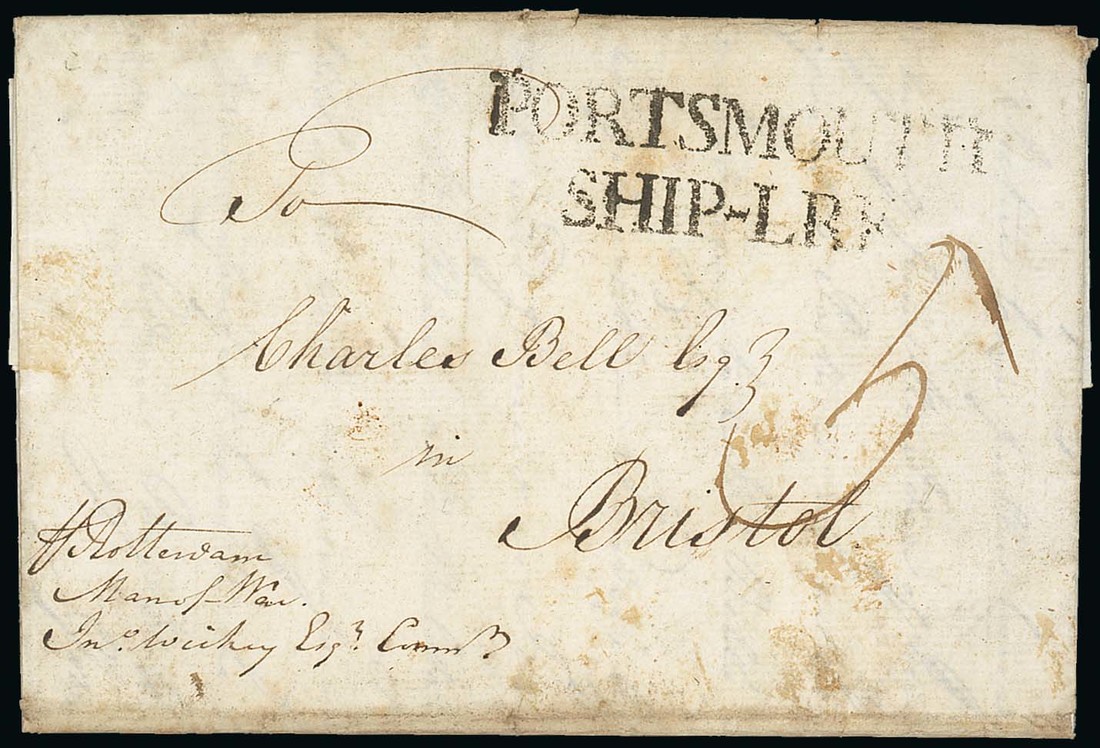 PORTSMOUTH
SHIP-LRE
To
Charles Bell Esqr
in
Bristol
Rotterdam
Man of War.
Jno. Esqr. Commr